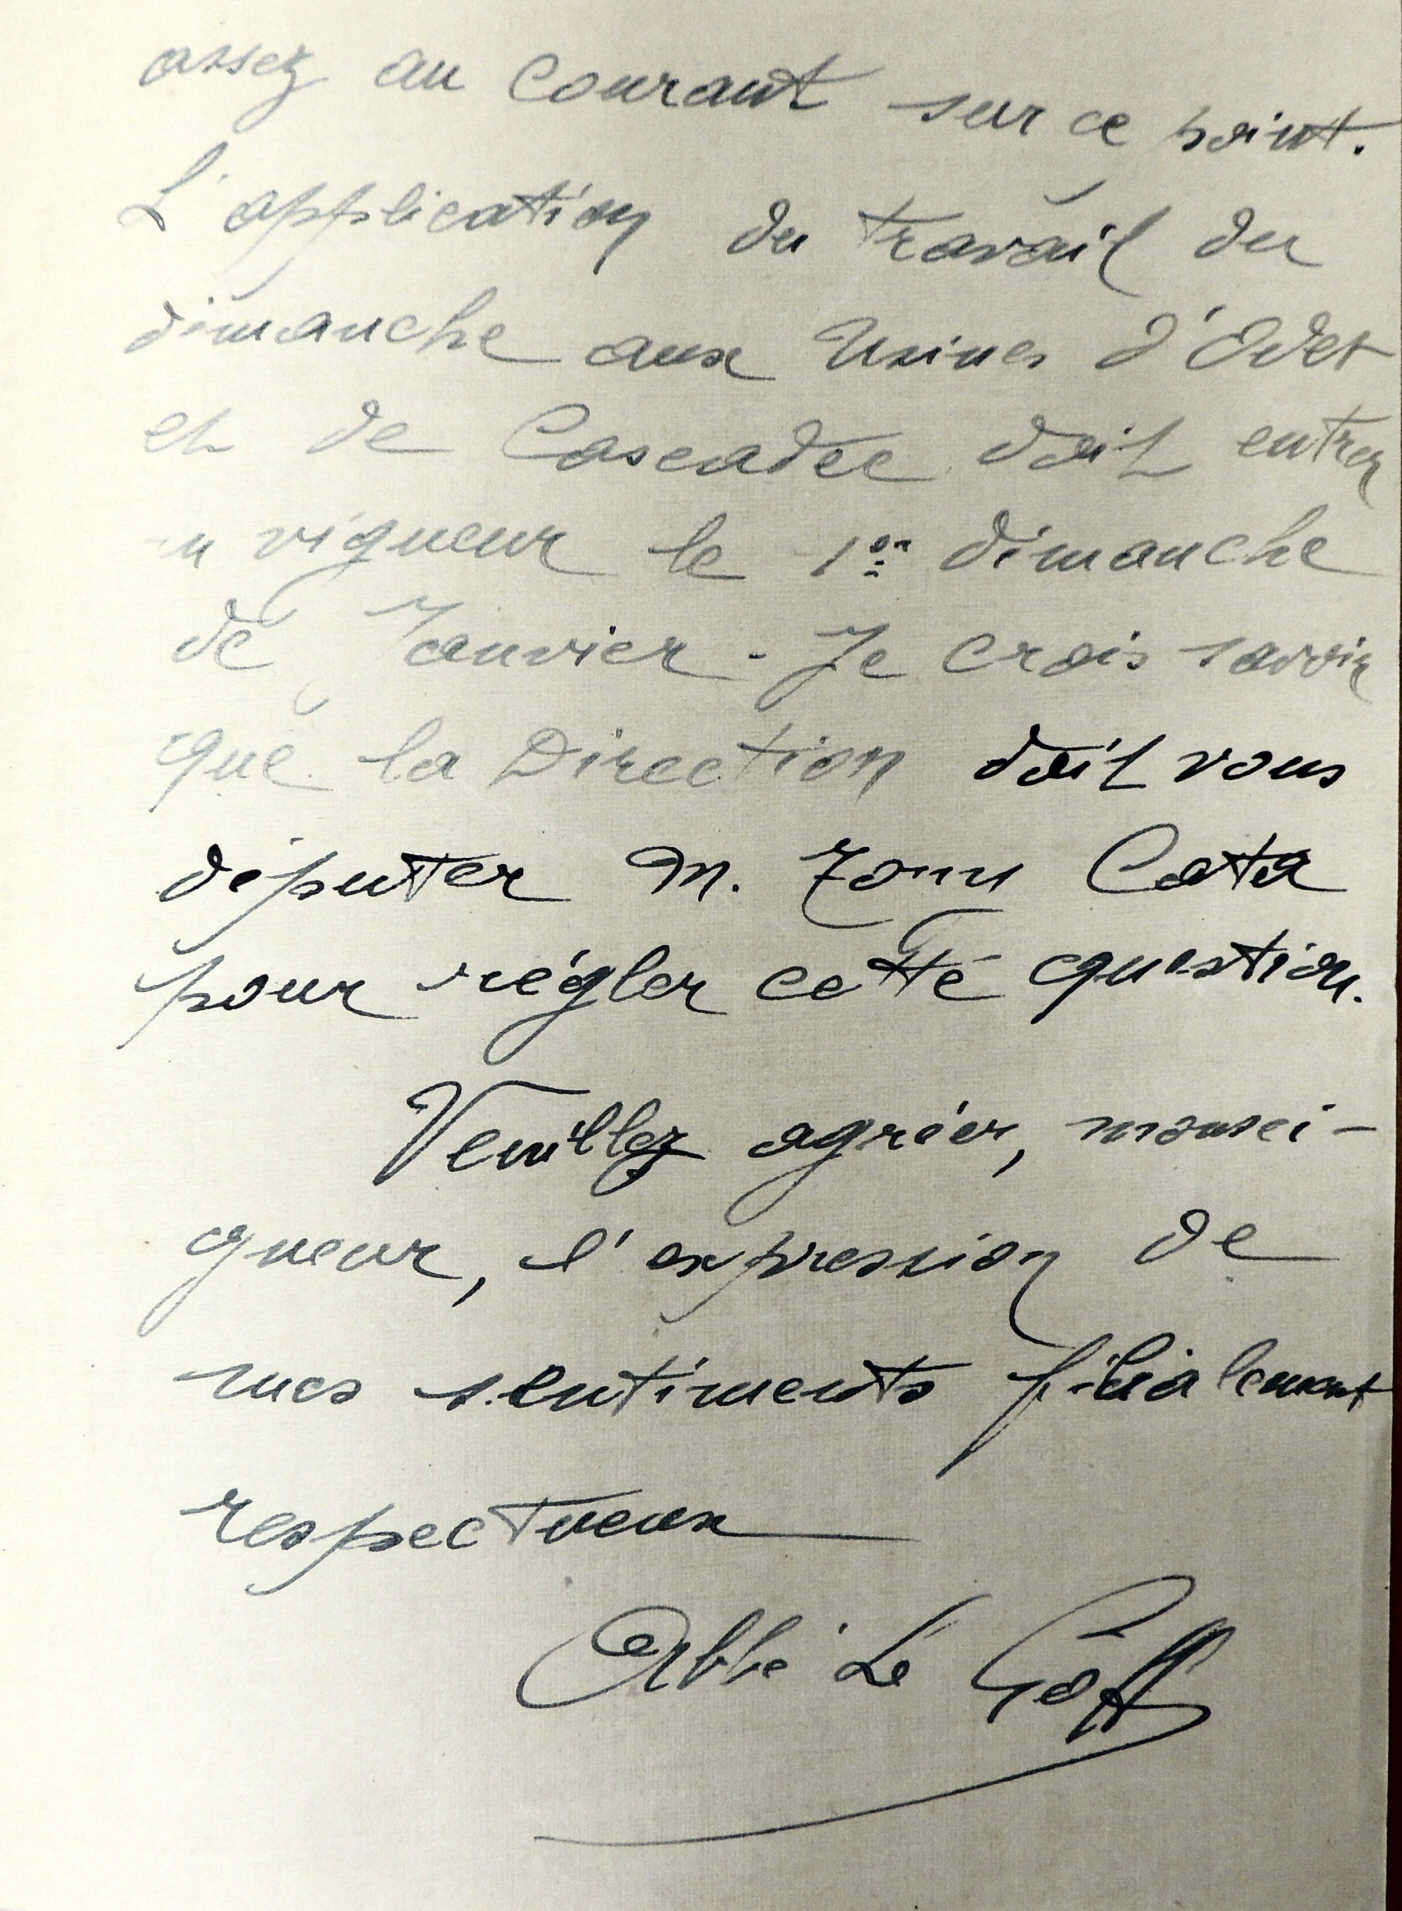 assez au courant sur ce point.
L'application du travail du
dimanche aux Usines d'Odet
et de Cascadec doit entrer
en vigueur le 1er dimanche
de Janvier - Je crois savoir
que la Direction doit vous
députer M. Tony Cota
pour régler cette question.
Veuillez agréer, monsei-
gneur, l'expression de
mes sentiments filialement
respectueux
Abbé Le Goff